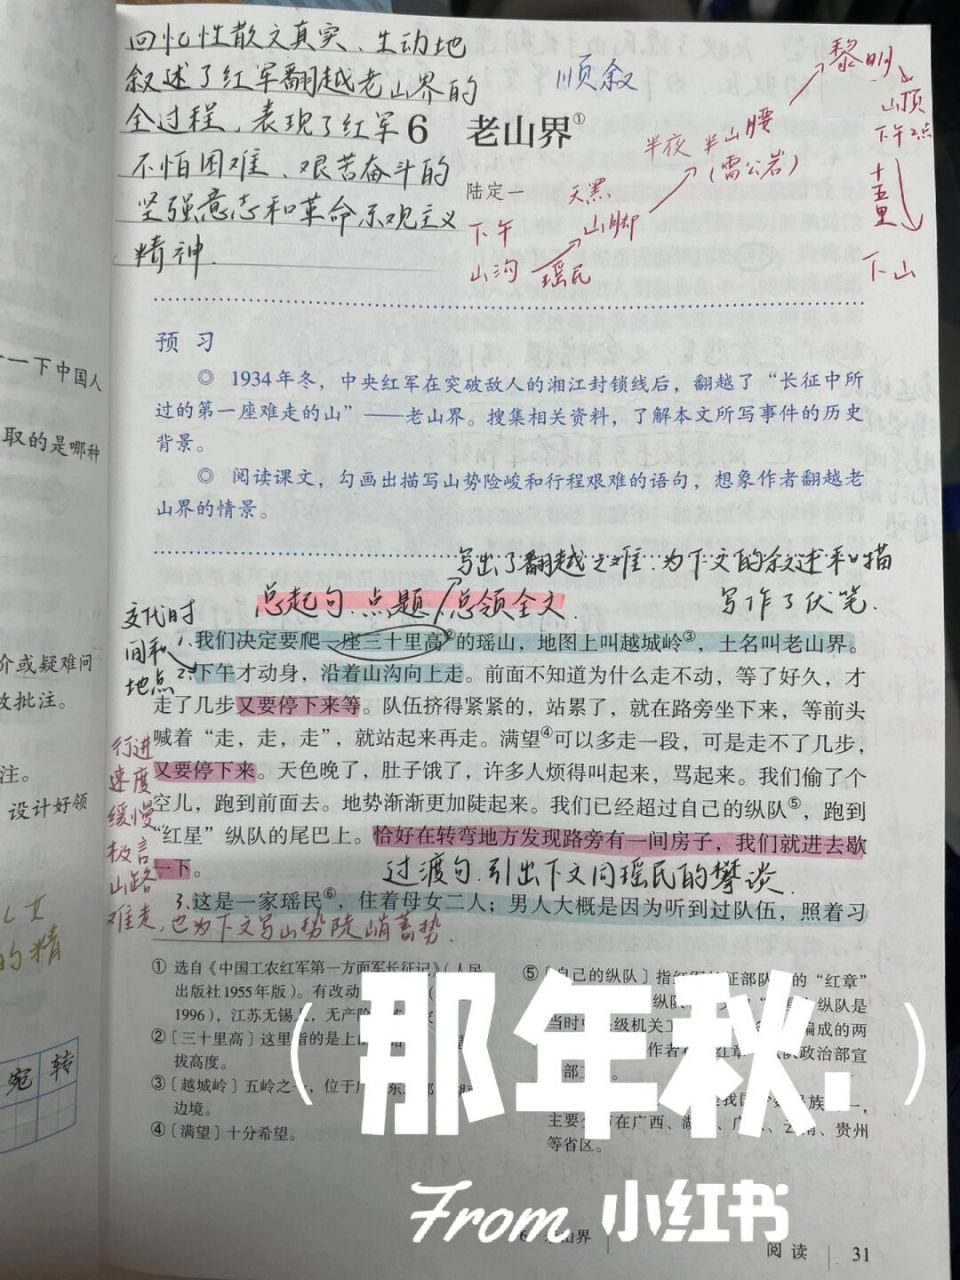 回忆性散文真实、生动地
叙述了红军翻越老山界的
全过程，表现了红军
不怕困难、艰苦奋斗的
坚强意志和革命乐观主义
精神.
顺叙
6 老山界①
陆定
下午
山沟
瑶民
天黑
山脚
半夜 半山腰
(雷公岩)
黎明
山顶
下午2点
十五里
下山
一下中国人
取的是哪种
介或疑难问
批注。
注。
设计好领
的精
宛 转
预 习
◎ 1934年冬，中央红军在突破敌人的湘江封锁线后，翻越了“长征中所
过的第一座难走的山”——老山界。搜集相关资料，了解本文所写事件的历史
背景。
◎ 阅读课文，勾画出描写山势险峻和行程艰难的语句，想象作者翻越老
山界的情景。
写出了翻越之难.为下文的叙述和描
写作了伏笔.
总起句 点题/总领全文
交代时
间和
地点
1.我们决定要爬一座三十里高②的瑶山，地图上叫越城岭③，土名叫老山界。
2.下午才动身，沿着山沟向上走。前面不知道为什么走不动，等了好久，才
走了几步又要停下来等。队伍挤得紧紧的，站累了，就在路旁坐下来，等前头
喊着“走，走，走”，就站起来再走。满望④可以多走一段，可是走不了几步，
又要停下来。天色晚了，肚子饿了，许多人烦得叫起来，骂起来。我们偷了个
空儿，跑到前面去。地势渐渐更加陡起来。我们已经超过自己的纵队⑤，跑到
“红星”纵队的尾巴上。恰好在转弯地方发现路旁有一间房子，我们就进去歇
一下。
行进
速度
缓慢
极言
山路
难走，也为下文写山势陡峭蓄势.
过渡句.引出下文同瑶民的攀谈.
3.这是一家瑶民⑥，住着母女二人；男人大概是因为听到过队伍，照着习
① 选自《中国工农红军第一方面军长征记》（人民
出版社1955年版）。有改动
1996），江苏无锡人，无产阶
②〔三十里高〕这里指的是上山
拔高度。
③〔越城岭〕五岭之一，位于
边境。
④〔满望〕十分希望。
⑤〔自己的纵队〕指红军长征部队的“红章”
纵队是
当时中 级机关 编成的两
作者 红章 队政治部宣
部
主要分布在广西、湖 、广 、云南、贵州
等省区。
（那年秋.）
From 小红书
6 老山界
阅读 31